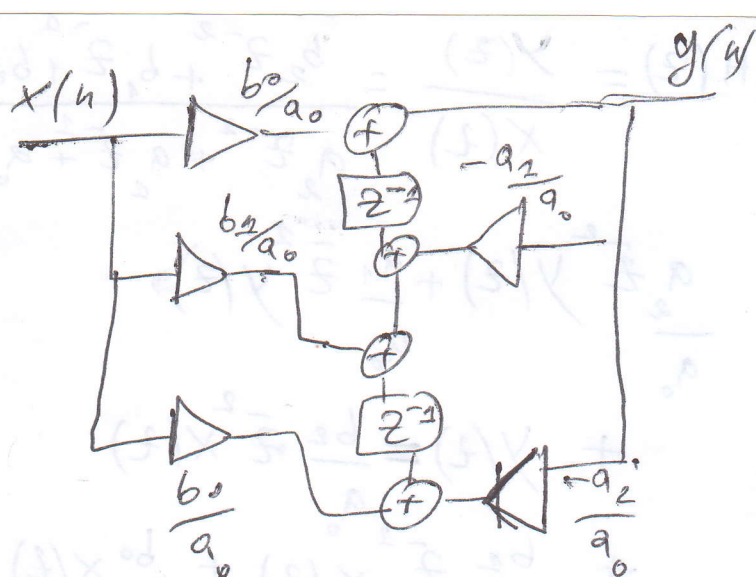 x(n)
b0/a0
+
y(n)
z⁻¹
-a1/a0
b1/a0
+
+
z⁻¹
b0/a0
+
-a2/a0